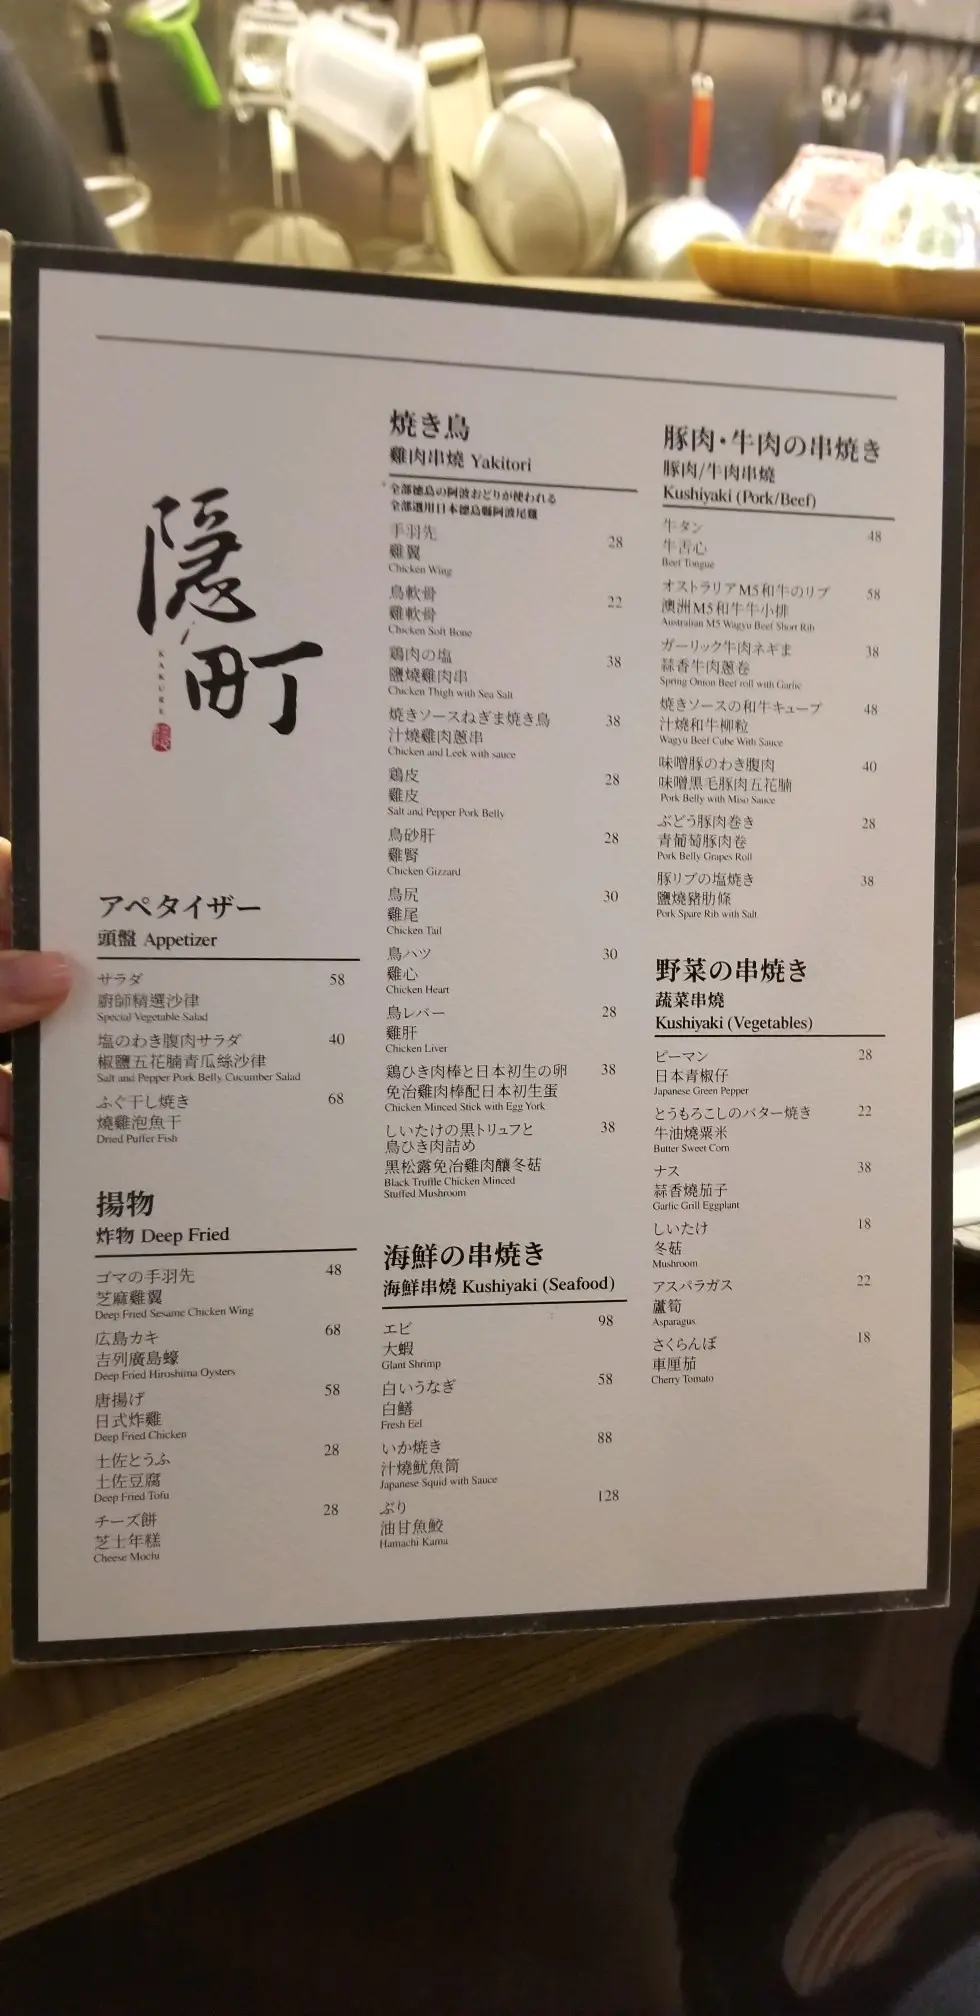 隱町
KAKURE
アペタイザー
頭盤 Appetizer
サラダ 58
廚師精選沙律
Special Vegetable Salad
塩のわき腹肉サラダ 40
椒鹽五花腩青瓜絲沙律
Salt and Pepper Pork Belly Cucumber Salad
ふぐ干し焼き 68
燒雞泡魚干
Dried Puffer Fish
揚物
炸物 Deep Fried
ゴマの手羽先 48
芝麻雞翼
Deep Fried Sesame Chicken Wing
広島カキ 68
吉列廣島蠔
Deep Fried Hiroshima Oysters
唐揚げ 58
日式炸雞
Deep Fried Chicken
土佐とうふ 28
土佐豆腐
Deep Fried Tofu
チーズ餅 28
芝士年糕
Cheese Mochi
焼き鳥
雞肉串燒 Yakitori
*全部徳島の阿波おどりが使われる
全部選用日本德島縣阿波尾雞
手羽先 28
雞翼
Chicken Wing
鳥軟骨 22
雞軟骨
Chicken Soft Bone
鶏肉の塩 38
鹽燒雞肉串
Chicken Thigh with Sea Salt
焼きソースねぎま焼き鳥 38
汁燒雞肉蔥串
Chicken and Leek with sauce
鶏皮 28
雞皮
Salt and Pepper Pork Belly
鳥砂肝 28
雞腎
Chicken Gizzard
鳥尻 30
雞尾
Chicken Tail
鳥ハツ 30
雞心
Chicken Heart
鳥レバー 28
雞肝
Chicken Liver
鶏ひき肉棒と日本初生の卵 38
免治雞肉棒配日本初生蛋
Chicken Minced Stick with Egg York
しいたけの黒トリュフと 38
鳥ひき肉詰め
黑松露免冶雞肉釀冬菇
Black Truffle Chicken Minced
Stuffed Mushroom
海鮮の串焼き
海鮮串燒 Kushiyaki (Seafood)
エビ 98
大蝦
Giant Shrimp
白いうなぎ 58
白鱔
Fresh Eel
いか焼き 88
汁燒魷魚筒
Japanese Squid with Sauce
ぶり 128
油甘魚鮫
Hamachi Kama
豚肉・牛肉の串焼き
豚肉/牛肉串燒
Kushiyaki (Pork/Beef)
牛タン 48
牛舌心
Beef Tongue
オストラリアM5和牛のリブ 58
澳洲M5和牛牛小排
Australian M5 Wagyu Beef Short Rib
ガーリック牛肉ネギま 38
蒜香牛肉蔥卷
Spring Onion Beef roll with Garlic
焼きソースの和牛キューブ 48
汁燒和牛柳粒
Wagyu Beef Cube With Sauce
味噌豚のわき腹肉 40
味噌黑毛豚肉五花腩
Pork Belly with Miso Sauce
ぶどう豚肉巻き 28
青葡萄豚肉卷
Pork Belly Grapes Roll
豚リブの塩焼き 38
鹽燒豬肋條
Pork Spare Rib with Salt
野菜の串焼き
蔬菜串燒
Kushiyaki (Vegetables)
ピーマン 28
日本青椒仔
Japanese Green Pepper
とうもろこしのバター焼き 22
牛油燒粟米
Butter Sweet Corn
ナス 38
蒜香燒茄子
Garlic Grill Eggplant
しいたけ 18
冬菇
Mushroom
アスパラガス 22
蘆筍
Asparagus
さくらんぼ 18
車厘茄
Cherry Tomato